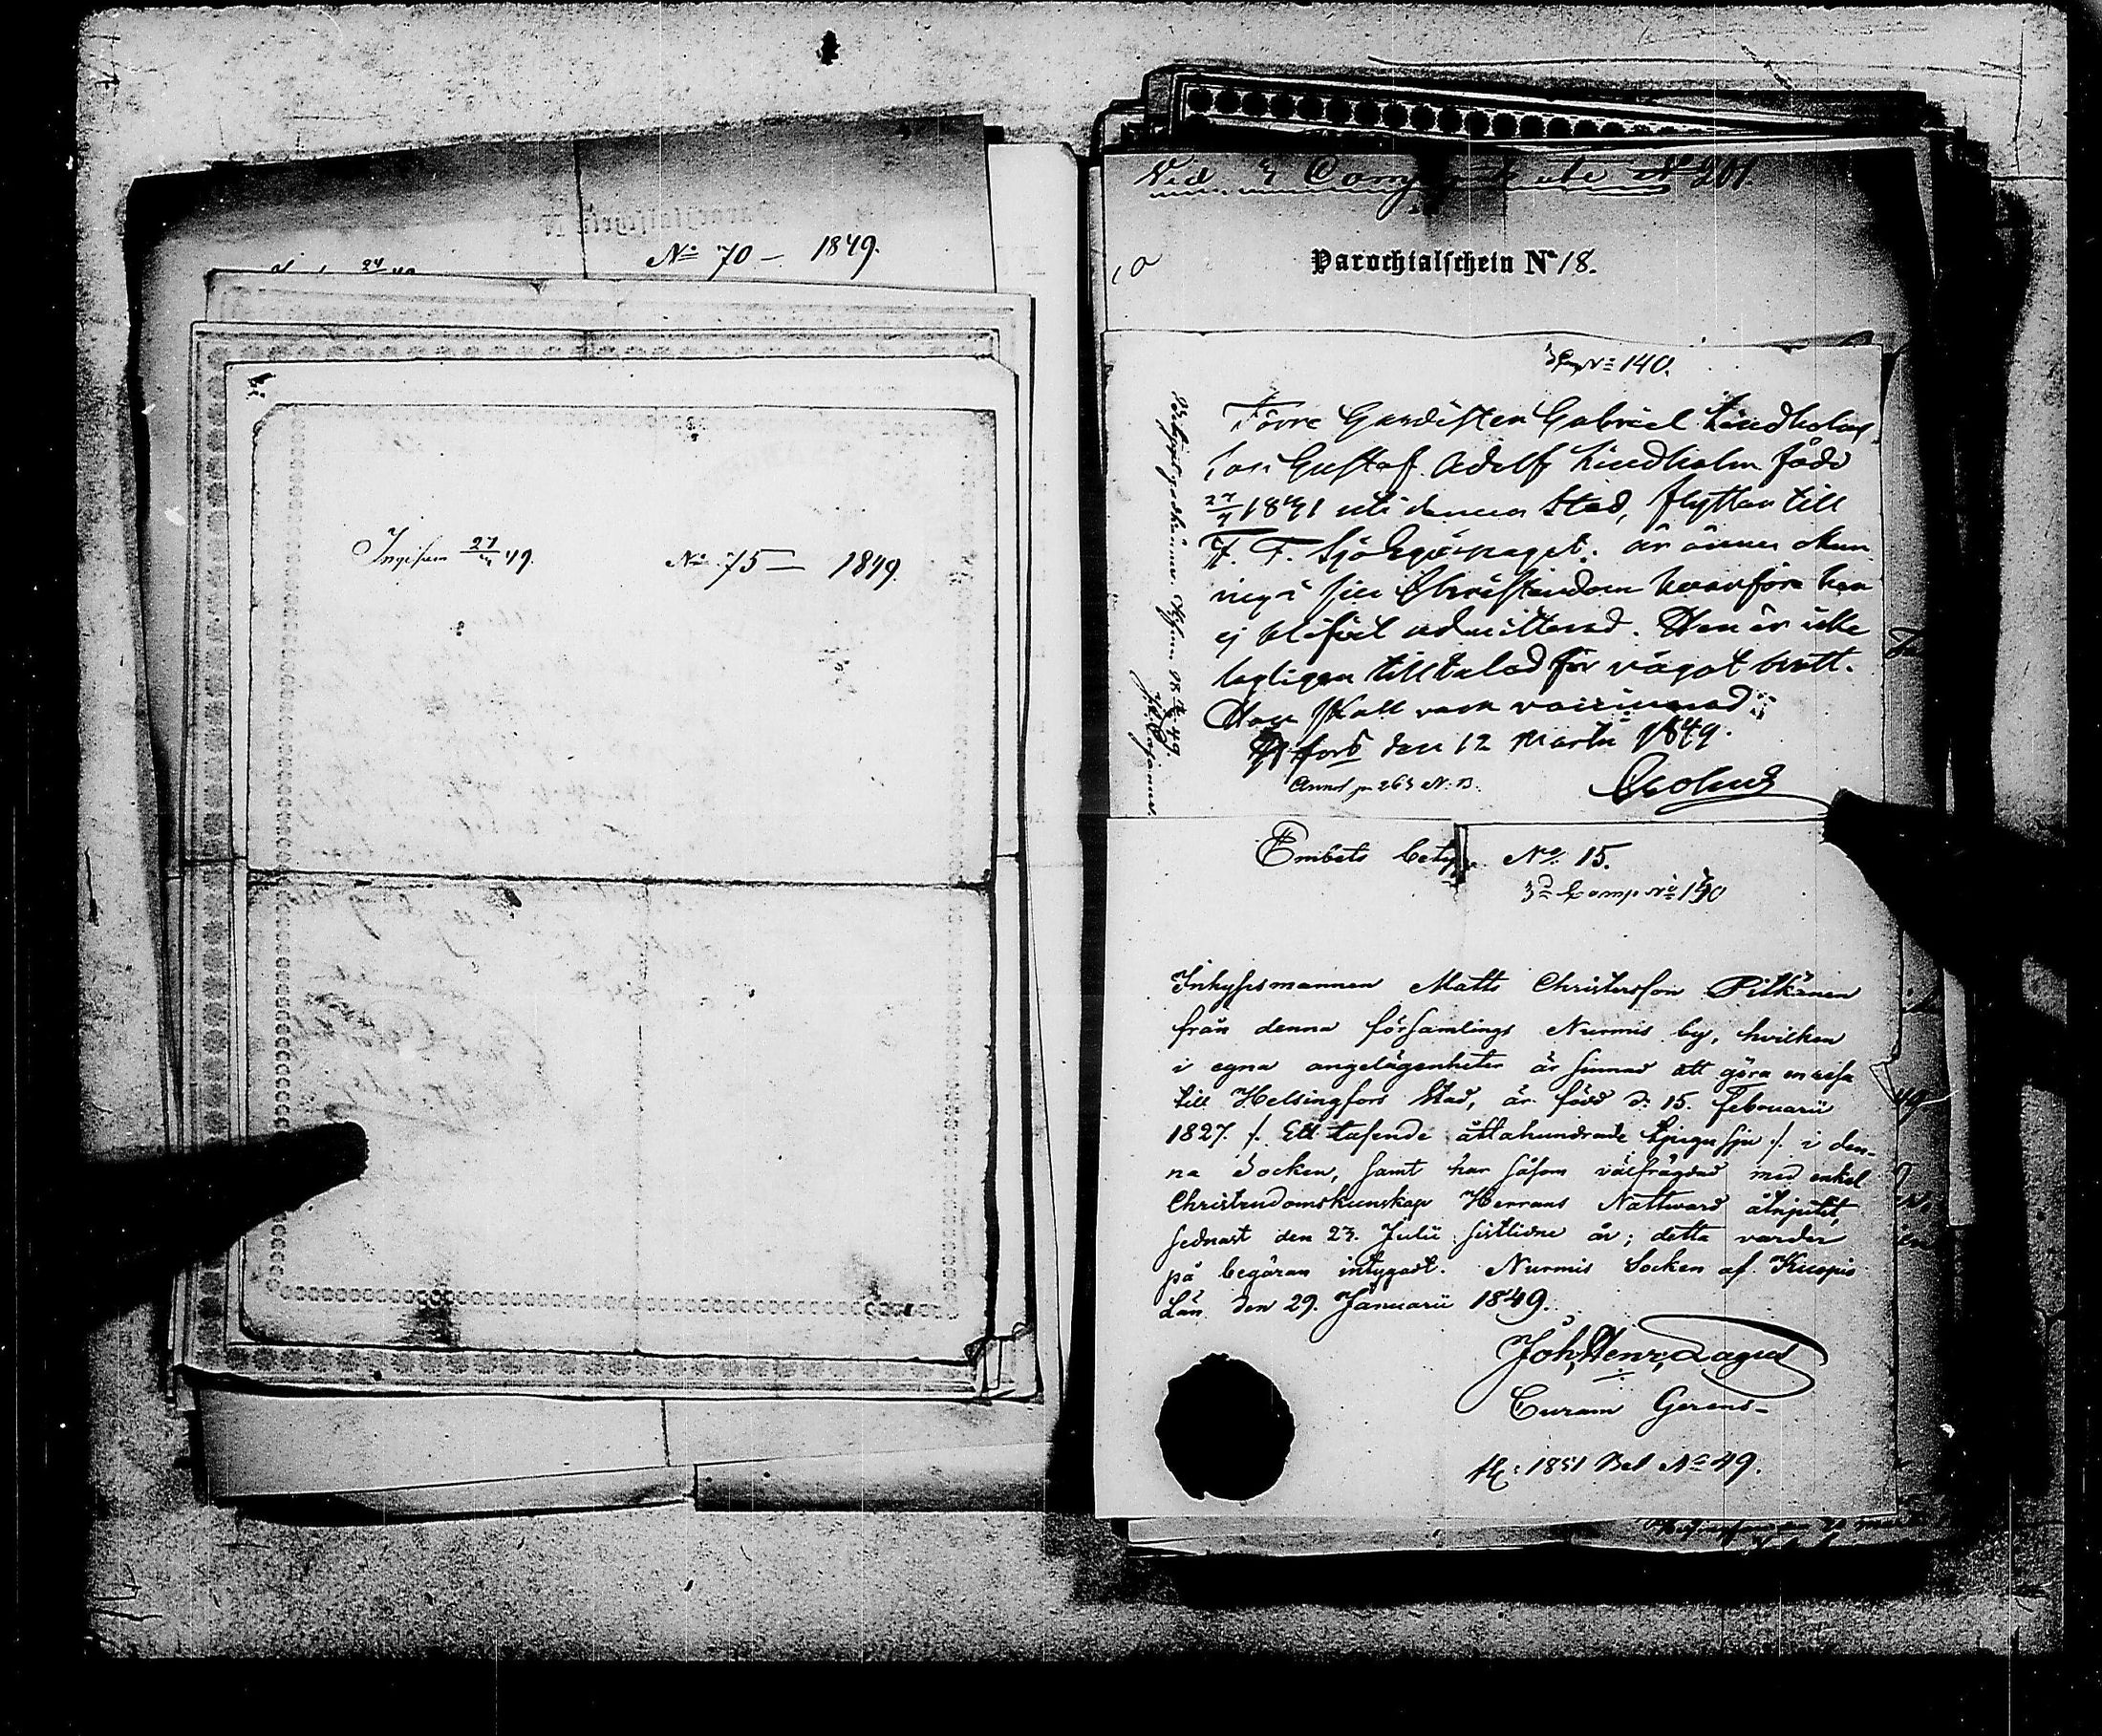 No 70 – 1849.
Ingifven 27/4 49.
No 75 – 1849.
Parochialschein No 18.
3 Comp No 140.
Förre Gardisten Gabriel Lindholms
son Gustaf Adolf Lindholm född
27/7 1841 uti denna Stad, flyttar till
F. F. Sjö Eqvipaget. är ännu okun
nig i sin Christendom hvarföre han
ej blifvit admitterad. Han är icke
lagligen tilltalad för något brott.
Han skall vara vaccinerad.
H:fors den 12 Martii 1849.
Annot p 263 N. B.
Embets betyg No 15.
3de Comp No 150
Inhysesmannen Matts Christersson Pitkänen
från denna församlings Nurmis by, hvilken
i egna angelägenheter är sinnad att göra en resa
till Helsingfors Stad, är född d: 15. Februarii
1827. /. Ett tusende åttahundrade tjugu sju ./. i den-
na Socken, samt har såsom välfrägdad med enkel
Christendomskunskap Herrans Nattward åtnjutit,
sednast den 23. Julii sistlidne år; detta varder
på begäran intygadt. Nurmis Socken af Kuopio
Län den 29. Januarii 1849.
Joh. Henr. Lagus
Curam Gerens –
1851 Bet No 49.